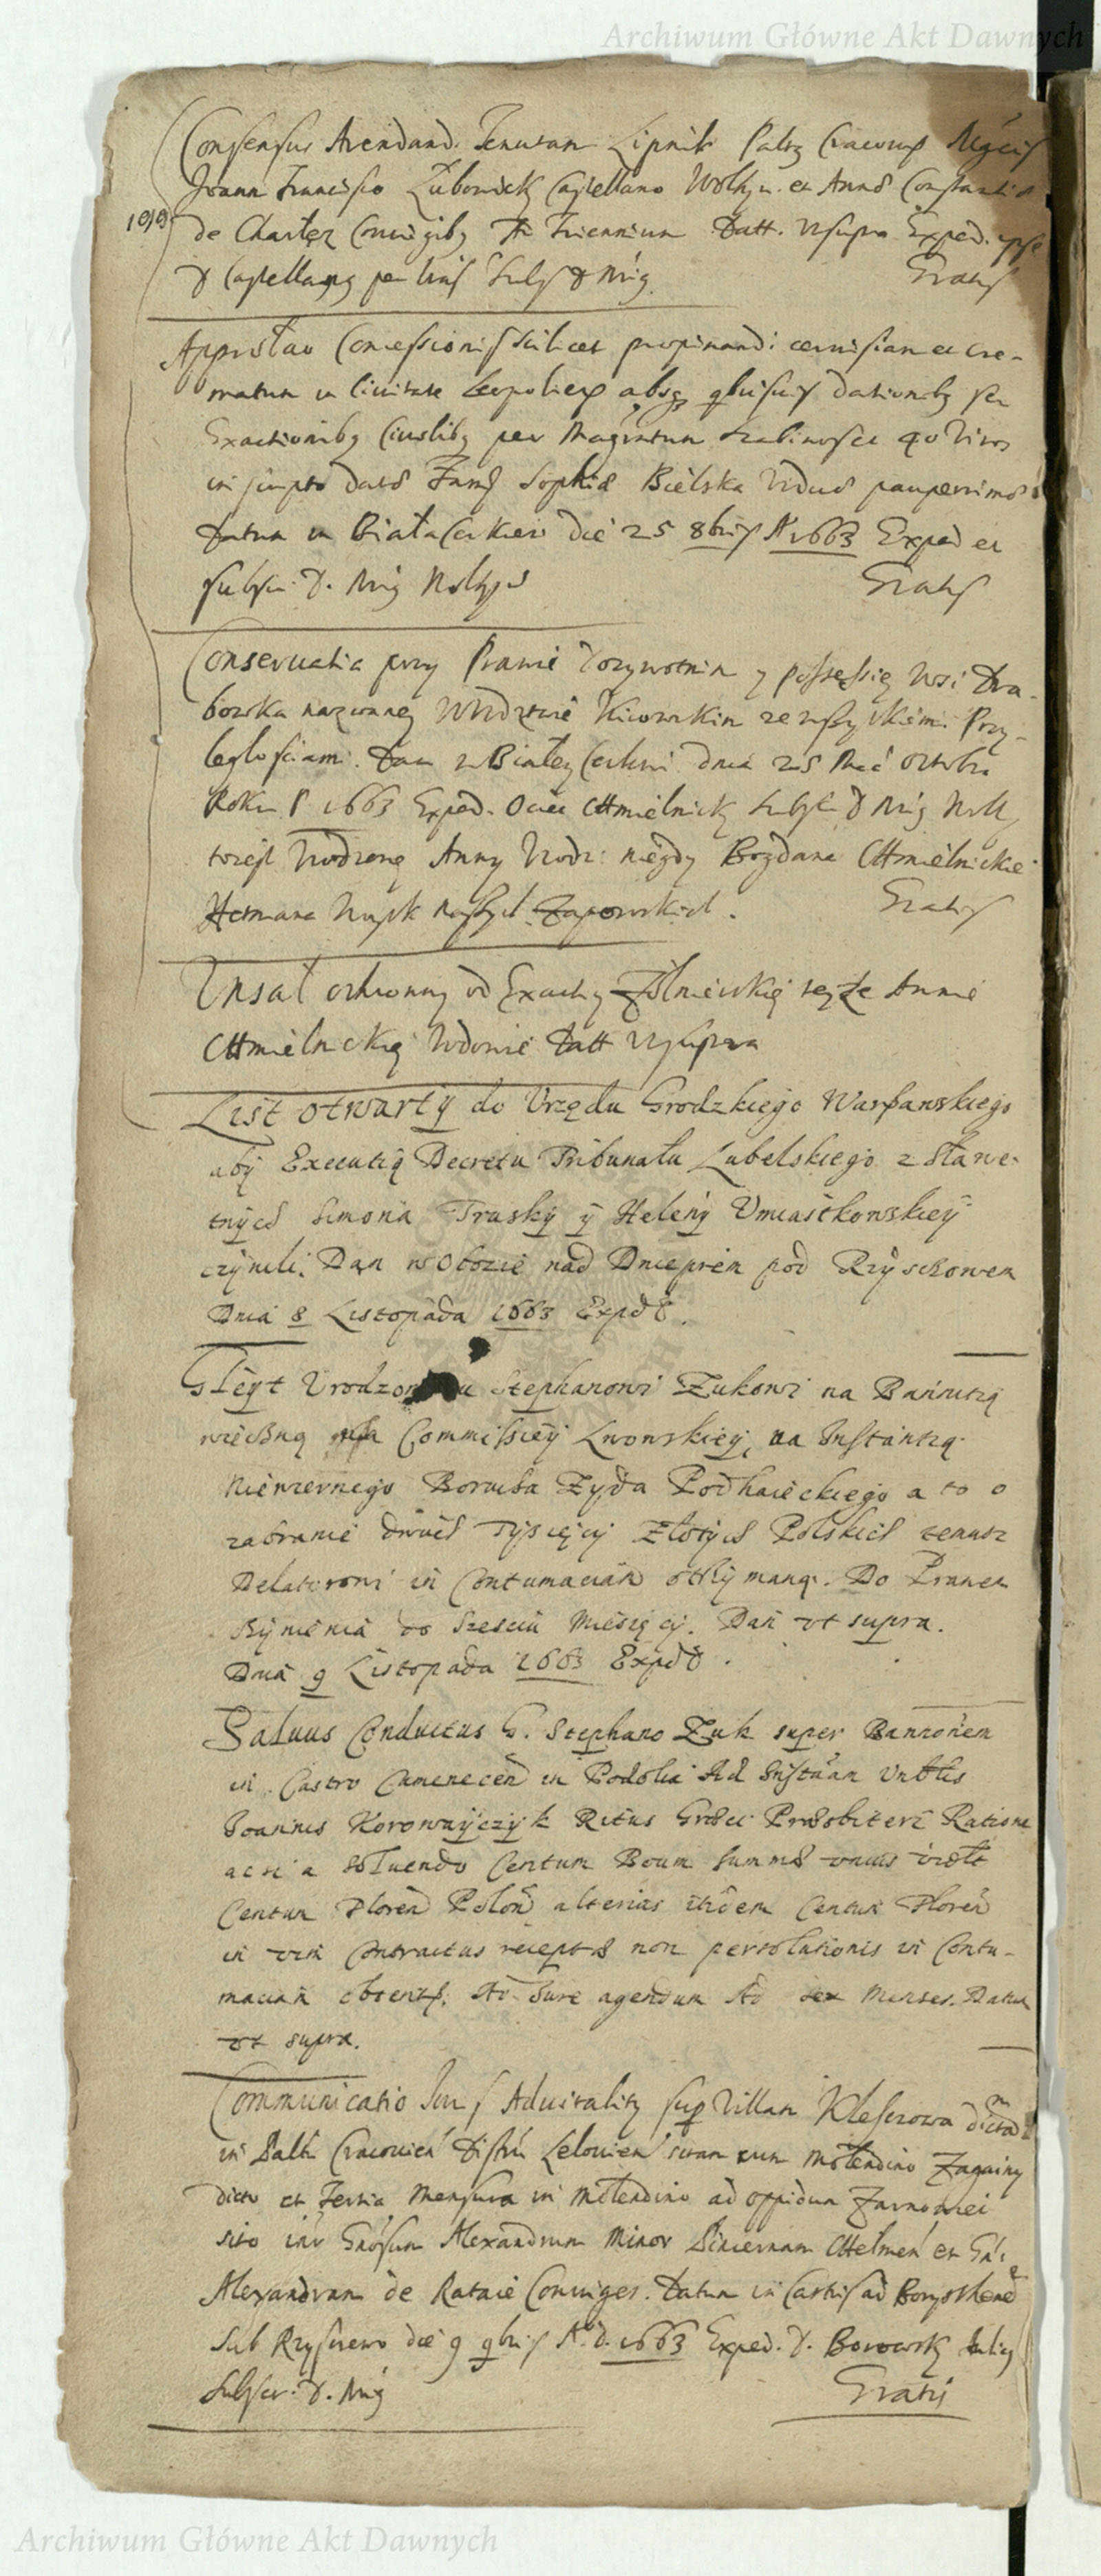 Archiwum Główne Akt Dawnych
Consensus Arendand. Tenutam Lipnik Paltg Cracoug
Joann Francisco Lubowick Castellano Wolhyn. et Anna Constantia
de Charlęz Coniugibg Ad Triennium Datt. Vt supra Exped. ipse
D Castellang Subs D Mig. Gratis
Approbao Concessionis scilicet propinandi cervisiam et cre-
matum in Civitate Leopolien absq dationibg seu
Exactionibg Cuiuslibg per Magistratum Scabinosq 40 Viros
in scripto data Fam Sophia Bielska Vidua pauperrima
Datum in Biała Cerkiew die 25 8bris A 1663 Exped et
subscr. D. Mig Gratis
Conservatia przy Prawie Dozywotnim y possessiey Wsi
bowka nazwaney Wdztwie Kiiowskim ze wszystkiemi Przy-
ległosciami. Dan w Białey Cerkwi dnia 25 Mca Octobra
Roku P 1663 Exped. Chmielnick Subst D Mig
Urodzoney Anny Urodz: niegdy Bogdana Chmielnickie
Hetmana Woysk naszych Zaporowskich. Gratis
Uniwersał ochronny od Exactiy Zołnierskiey teyże Annie
Chmielnickiey Wdowie Datt Vt supra
List otwarty do Urzędu Grodzkiego Warszawskiego
aby Executią Decretu Tribunału Lubelskiego z Sławe-
tnych Simona Truski y Heleny Umiastkowskiey
czynili. Dan w Obozie nad Dnieprem pod Rzyscżowem
Dnia 8 Listopada 1663 Expdt.
Gleyt Urodzonemu Stephanowi Zukowi na Bannitią
wieczną Commissiey Lwowskiey, na Instantią
Niewiernego Borucha Zyda Podhaieckiego a to o
zabranie dwuch Tysięcy Złotych Polskich temusz
Delatorowi in Contumaciam otrzymaną. Do Prawem
czynienia do Szesciu Miesięcy. Dan vt supra.
Dnia 9 Listopada 1663 Expdt.
Salvus Conductus G. Stephano Zuk super Bannonem
in Castro Camenecen in Podolia Ad Instaam
Joannis Korowayczyk Ritus Graeci Praesbiteri Ratione
soluendo Centum Boum summa unius videlt
Centum Floren Polon alterius itidem Centum Floren
in vim Contractus recepta non persolutionis in Contu-
maciam obtent. Ad Jure agendum Ad sex Menses. Datum
vt supra.
Communicatio Juris Advitalitg sup Villam Kleszczowa dictam
in Paltu Cracovien Distri Lelovien sitam cum Molendino Zagainy
dicto et Tertia Mensura in Molendino ad oppidum Zarnowiec
sito inr Gnosum Alexandrum Minor Pincernam Chelmen et Gn
Alexandram de Rataie Coniuges. Datum in Castris ad Borysthene
Sub Rzyszczewo die 9 9bris A. D. 1663 Exped. D. Borowsk
Subscr. D. Mig Gratis
Archiwum Główne Akt Dawnych